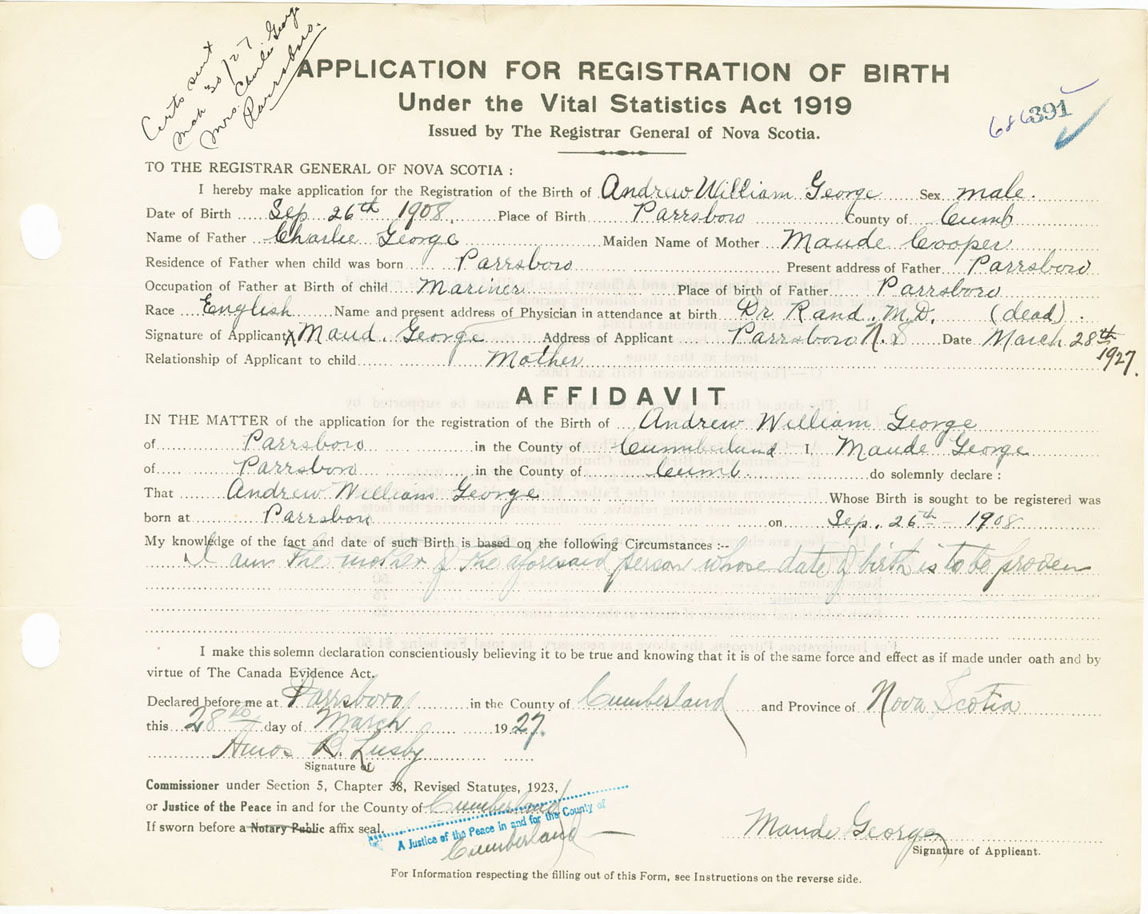 Certs sent
Mch 30/27
Mrs. Charlie George
Parrsboro.
APPLICATION FOR REGISTRATION OF BIRTH
Under the Vital Statistics Act 1919
Issued by The Registrar General of Nova Scotia.
686391
TO THE REGISTRAR GENERAL OF NOVA SCOTIA :
I hereby make application for the Registration of the Birth of Andrew William George Sex male.
Date of Birth Sep 26th 1908. Place of Birth Parrsboro County of Cumb
Name of Father Charlie George Maiden Name of Mother Maude Cooper
Residence of Father when child was born Parrsboro Present address of Father Parrsboro
Occupation of Father at Birth of child Mariner Place of birth of Father Parrsboro
Race English Name and present address of Physician in attendance at birth Dr Rand. M.D. (dead).
Signature of Applicant X Maud George Address of Applicant Parrsboro N.S Date March 28th 1927.
Relationship of Applicant to child Mother
AFFIDAVIT
IN THE MATTER of the application for the registration of the Birth of Andrew William George
of Parrsboro in the County of Cumberland I, Maude George
of Parrsboro in the County of Cumb. do solemnly declare :
That Andrew William George Whose Birth is sought to be registered was
born at Parrsboro on Sep. 26th - 1908
My knowledge of the fact and date of such Birth is based on the following Circumstances :--
I am the mother of the aforesaid person whose date of birth is to be proven
I make this solemn declaration conscientiously believing it to be true and knowing that it is of the same force and effect as if made under oath and by
virtue of The Canada Evidence Act.
Declared before me at Parrsboro in the County of Cumberland and Province of Nova Scotia
this 28th day of March 1927.
Amos B. Lusby
Signature of
Commissioner under Section 5, Chapter 38, Revised Statutes, 1923,
or Justice of the Peace in and for the County of Cumberland
If sworn before a Notary Public affix seal.
A Justice of the Peace in and for the County of
Cumberland
Maude George
Signature of Applicant.
For Information respecting the filling out of this Form, see Instructions on the reverse side.